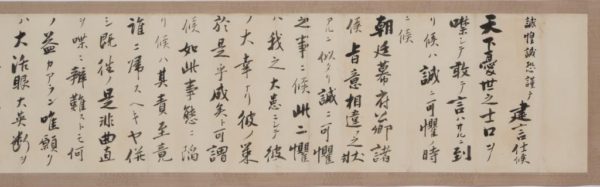 誠惶誠恐謹テ建言仕候
天下憂世之士口ヲ
噤シテ敢テ言ハサルニ到
リ候ハ誠ニ可懼ノ時
ニ候
朝廷幕府藩諸
侯皆意相違之状
アルニ似タリ誠ニ可懼
之事ニ候此二懼
ハ我之大患ニシテ彼
ノ大幸ナリ彼ノ策
於是乎成矣ト可謂
候如此事態ニ陥
リ候ハ其責至竟
誰ニ帰スヘキヤ併
シ既往是非曲直
ヲ喋々辨難ストモ何
ノ益カアラン唯願ク
ハ大活眼大英断ヲ